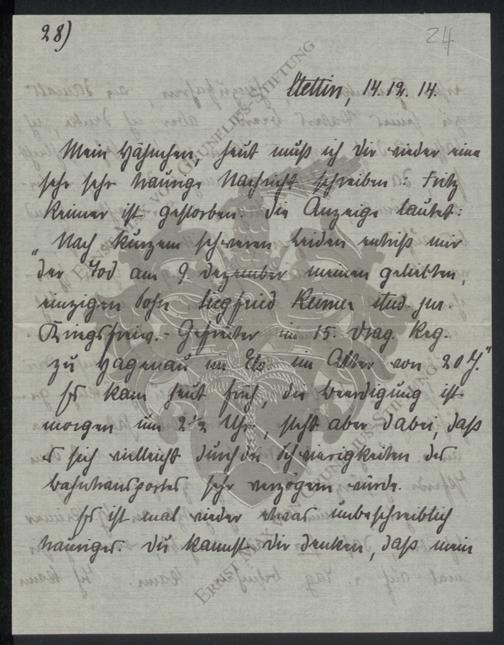 28)
24
Stettin, 14.12.14.
Mein Hähnchen, heut muß ich Dir wieder eine
sehr sehr traurige Nachricht schreiben: Fritz
Reimer ist gestorben. Die Anzeige lautet:
„Nach kurzem schweren Leiden entriß mir
der Tod am 9 Dezember meinen geliebten,
einzigen Sohn Siegfried Reimer stud. jur.
Kriegsfreiw.- Gefreiter im 15. Drag. Reg.
zu Hagenau im Els. im Alter von 20 J."
Es kam heut früh, die Beerdigung ist
morgen um 2 1/2 Uhr, steht aber dabei, daß
es sich vielleicht durch die Schwierigkeiten des
Bahntransportes sehr verzögern würde.
Es ist mal wieder etwas unbeschreiblich
trauriges. Du kannst Dir denken, daß mein